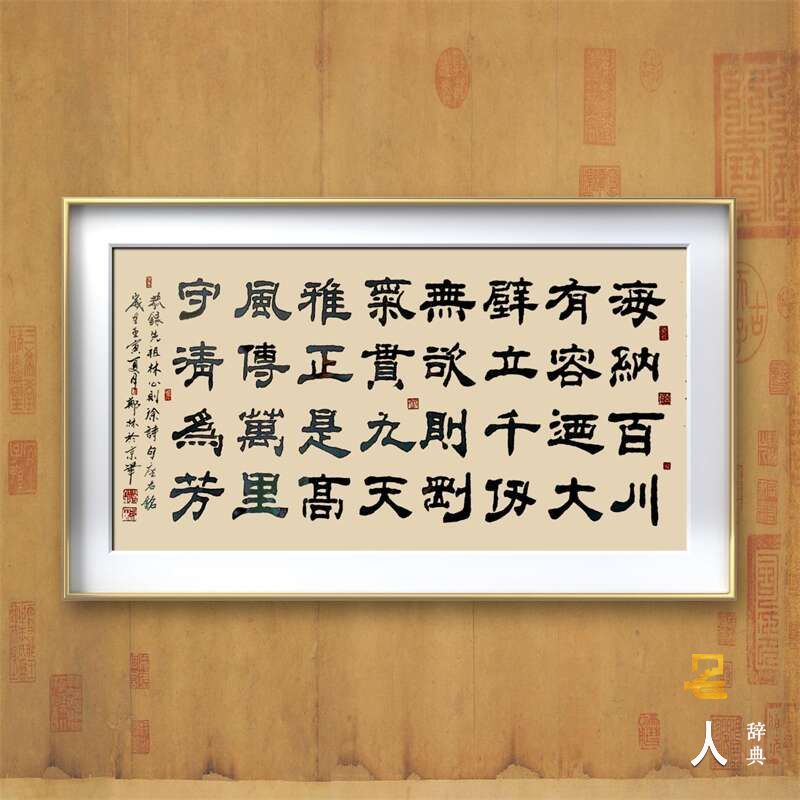 海納百川
有容迺大
壁立千仞
無欲則剛
氣貫九天
雅正是高
風傳萬里
守清為芳
恭錄先祖林公則徐詩句座右銘
歲在壬寅夏月鄭林於京華
名人
辞典